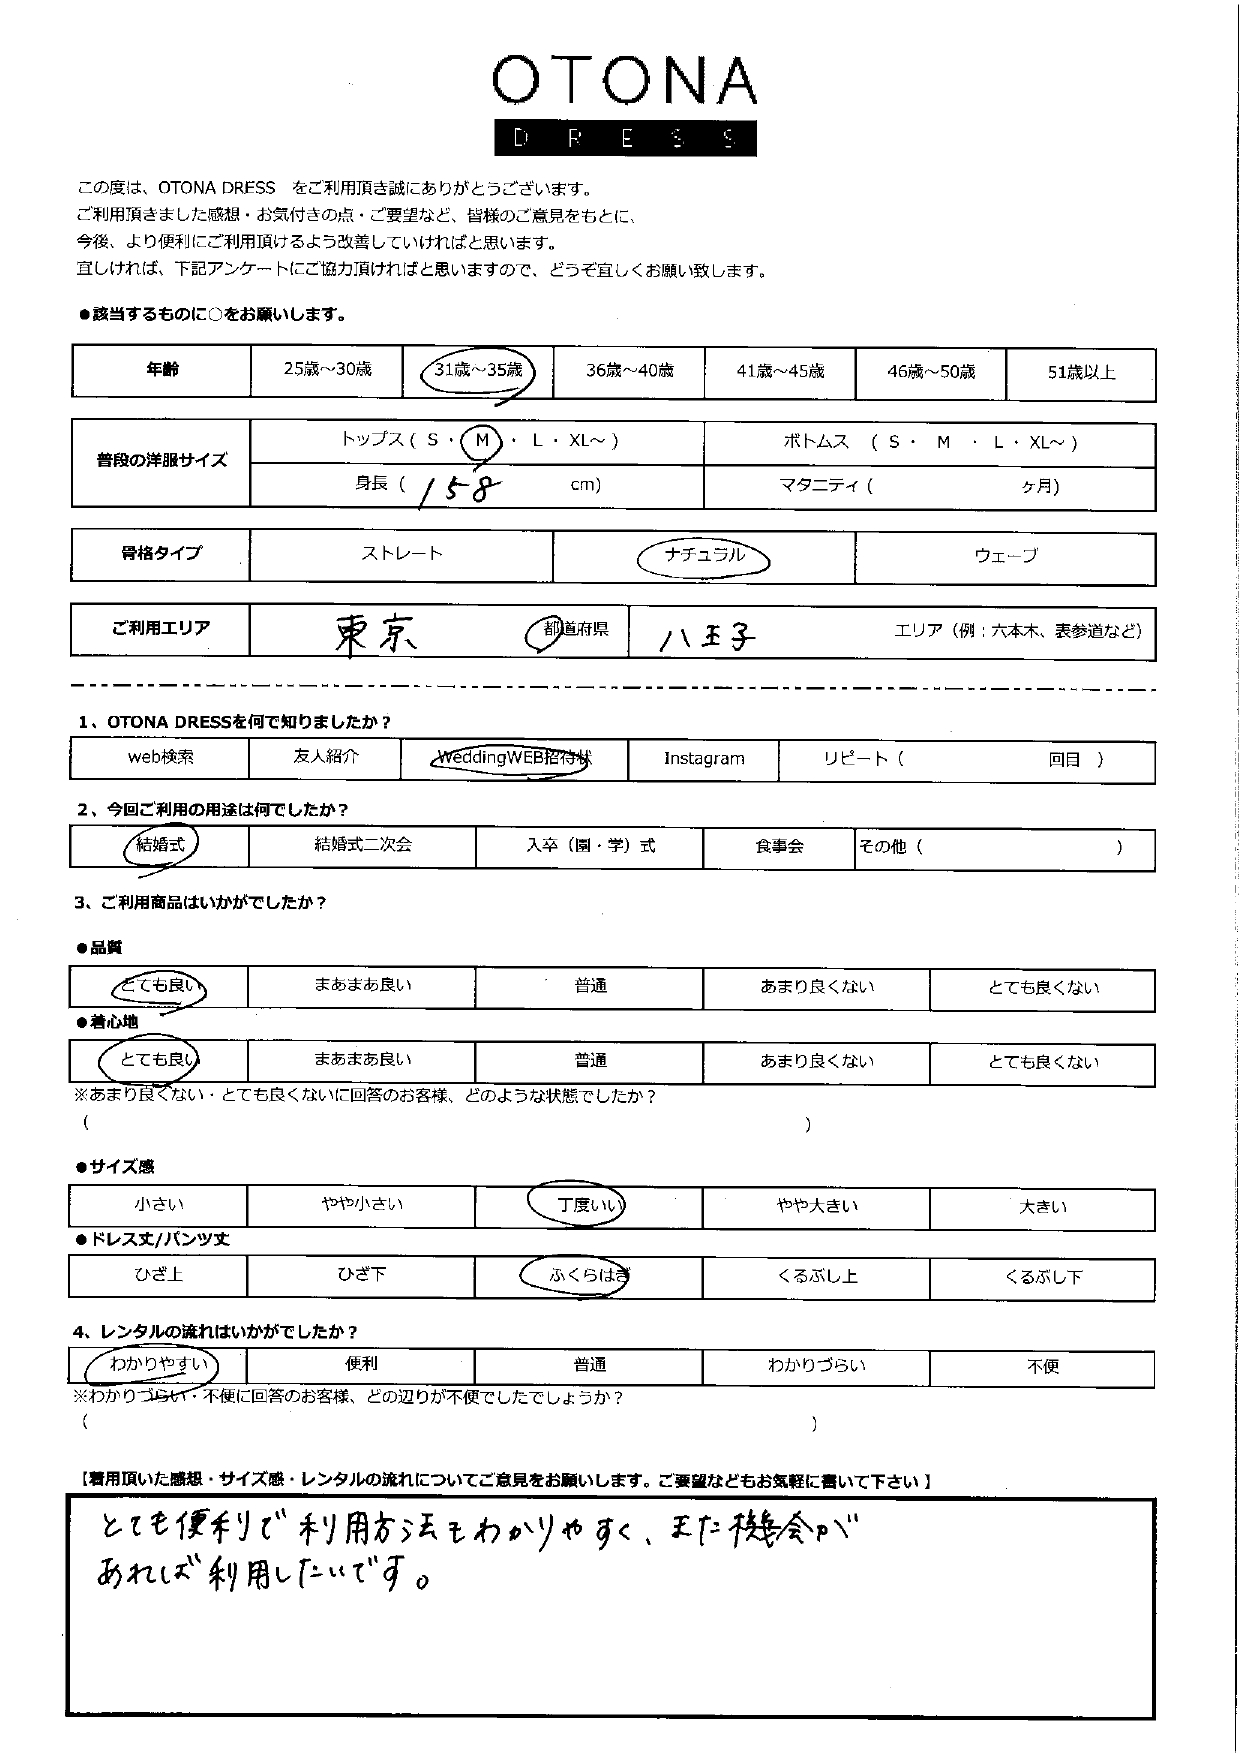 OTONA
DRESS
この度は、OTONA DRESS をご利用頂き誠にありがとうございます。
ご利用頂きました感想・お気付きの点・ご要望など、皆様のご意見をもとに、
今後、より便利にご利用頂けるよう改善していければと思います。
宜しければ、下記アンケートにご協力頂ければと思いますので、どうぞ宜しくお願い致します。
●該当するものに○をお願いします。
年齢 25歳～30歳 31歳～35歳 36歳～40歳 41歳～45歳 46歳～50歳 51歳以上
普段の洋服サイズ トップス ( S ・ M ・ L ・ XL～ ) ボトムス ( S ・ M ・ L ・ XL～ )
身長 ( 158 cm) マタニティ ( ヶ月)
骨格タイプ ストレート ナチュラル ウェーブ
ご利用エリア 東京 都道府県 八王子 エリア（例：六本木、表参道など）
1、OTONA DRESSを何で知りましたか？
web検索 友人紹介 WeddingWEB招待状 Instagram リピート（ 回目 ）
2、今回ご利用の用途は何でしたか？
結婚式 結婚式二次会 入卒（園・学）式 食事会 その他（ ）
3、ご利用商品はいかがでしたか？
●品質
とても良い まあまあ良い 普通 あまり良くない とても良くない
●着心地
とても良い まあまあ良い 普通 あまり良くない とても良くない
※あまり良くない・とても良くないに回答のお客様、どのような状態でしたか？
（ ）
●サイズ感
小さい やや小さい 丁度いい やや大きい 大きい
●ドレス丈/パンツ丈
ひざ上 ひざ下 ふくらはぎ くるぶし上 くるぶし下
4、レンタルの流れはいかがでしたか？
わかりやすい 便利 普通 わかりづらい 不便
※わかりづらい・不便に回答のお客様、どの辺りが不便でしたでしょうか？
（ ）
【着用頂いた感想・サイズ感・レンタルの流れについてご意見をお願いします。ご要望などもお気軽に書いて下さい】
とても便利で利用方法もわかりやすく、また機会が
あれば利用したいです。